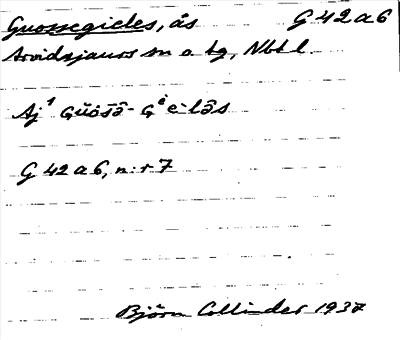 Guossegieles, ås G 42 a 6
Arvidsjaurs sn o. tg, Nbt l.
Aj¹
G 42 a 6, n:r 7
Björn Collinder 1937